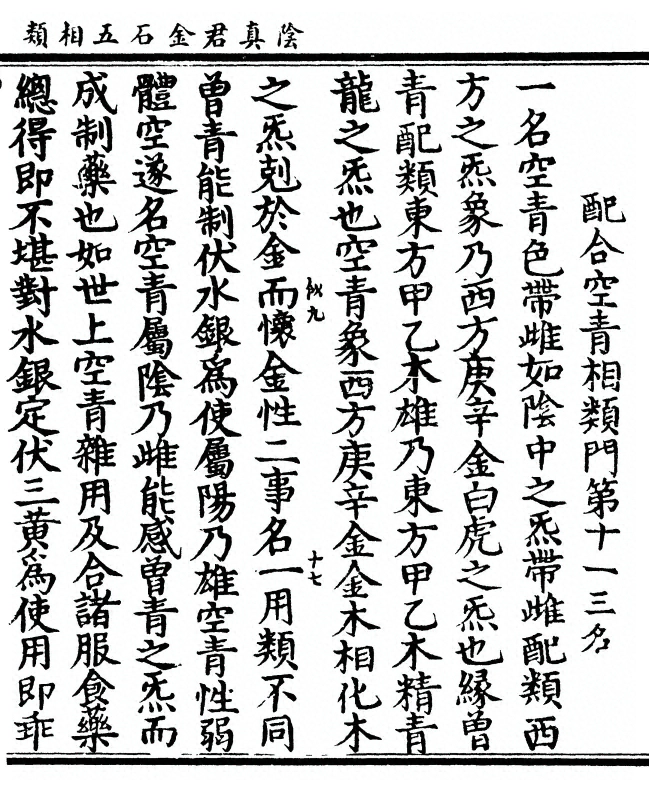 陰真君金石五相類
配合空青相類門第十一三名
一名空青色帶雌如陰中之炁帶雌配類西
方之炁象乃西方庚辛金白虎之炁也緣曾
青配類東方甲乙木雄乃東方甲乙木精青
龍之炁也空青象西方庚辛金金木相化木
似九
十七
之炁剋於金而懷金性二事名一用類不同
曾青能制伏水銀爲使屬陽乃雄空青性弱
體空遂名空青屬陰乃雌能感曾青之炁而
成制藥也如世上空青雜用及合諸服食藥
總得即不堪對水銀定伏三黃爲使用即乖